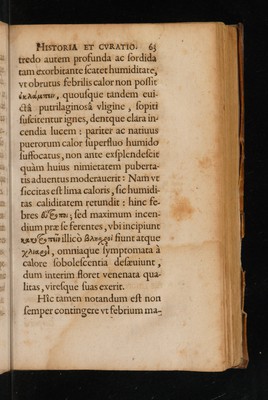 HISTORIA ET CVRATIO. 63
tredo autem profunda ac sordida
tam exorbitante scatet humiditate,
vt obrutus febrilis calor non possit
ἐκλάμπειν, quousque tandem eui-
ctâ putrilaginosâ vligine, sopiti
suscitentur ignes, dentque clara in-
cendia lucem: pariter ac natiuus
puerorum calor superfluo humido
suffocatus, non ante exsplendescit
quàm huius nimietatem puberta-
tis aduentus moderauerit: Nam vt
siccitas est lima caloris, sic humidi-
tas caliditatem retundit: hinc fe-
bres sed maximum incen-
dium præ se ferentes, vbi incipiunt
illicò βληχροὶ fiunt atque
χλιαροὶ, omniaque symptomata à
calore sobolescentia desæuiunt,
dum interim floret venenata qua-
litas, viresque suas exerit.
Hîc tamen notandum est non
semper contingere vt febrium ma-